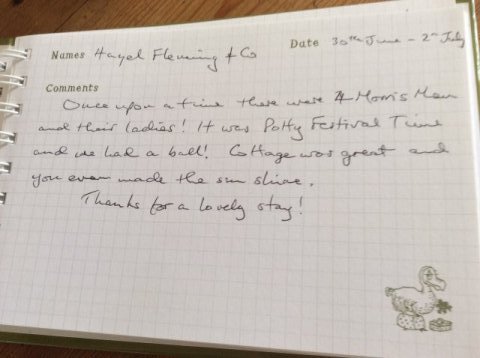 Names Hazel Fleming & Co Date 30th June - 2nd July
Comments
Once upon a time there were 4 Morris Men
and their ladies! It was Potty Festival Time
and we had a ball! Cottage was great and
you even made the sun shine.
Thanks for a lovely stay!